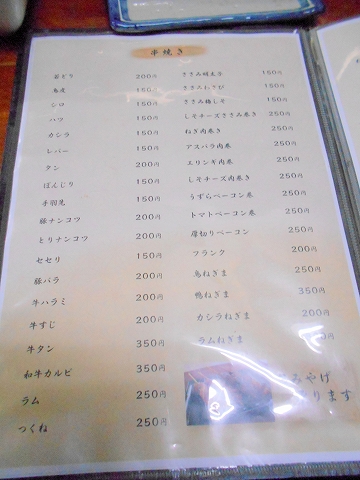 串焼き
若どり 200円
鳥皮 150円
シロ 150円
ハツ 150円
カシラ 150円
レバー 150円
タン 200円
ぼんじり 150円
手羽先 150円
豚ナンコツ 200円
とりナンコツ 200円
セセリ 150円
豚バラ 200円
牛ハラミ 200円
牛すじ 200円
牛タン 350円
和牛カルビ 350円
ラム 250円
つくね 250円
ささみ明太子 150円
ささみわさび 150円
ささみ梅しそ 150円
しそチーズささみ巻き 250円
ねぎ肉巻き 250円
アスパラ肉巻 250円
エリンギ肉巻 250円
しそチーズ肉巻き 250円
うずらベーコン巻 250円
トマトベーコン巻 250円
厚切りベーコン 250円
フランク 200円
鳥ねぎま 250円
鴨ねぎま 350円
カシラねぎま 200円
ラムねぎま
みやげ
ります